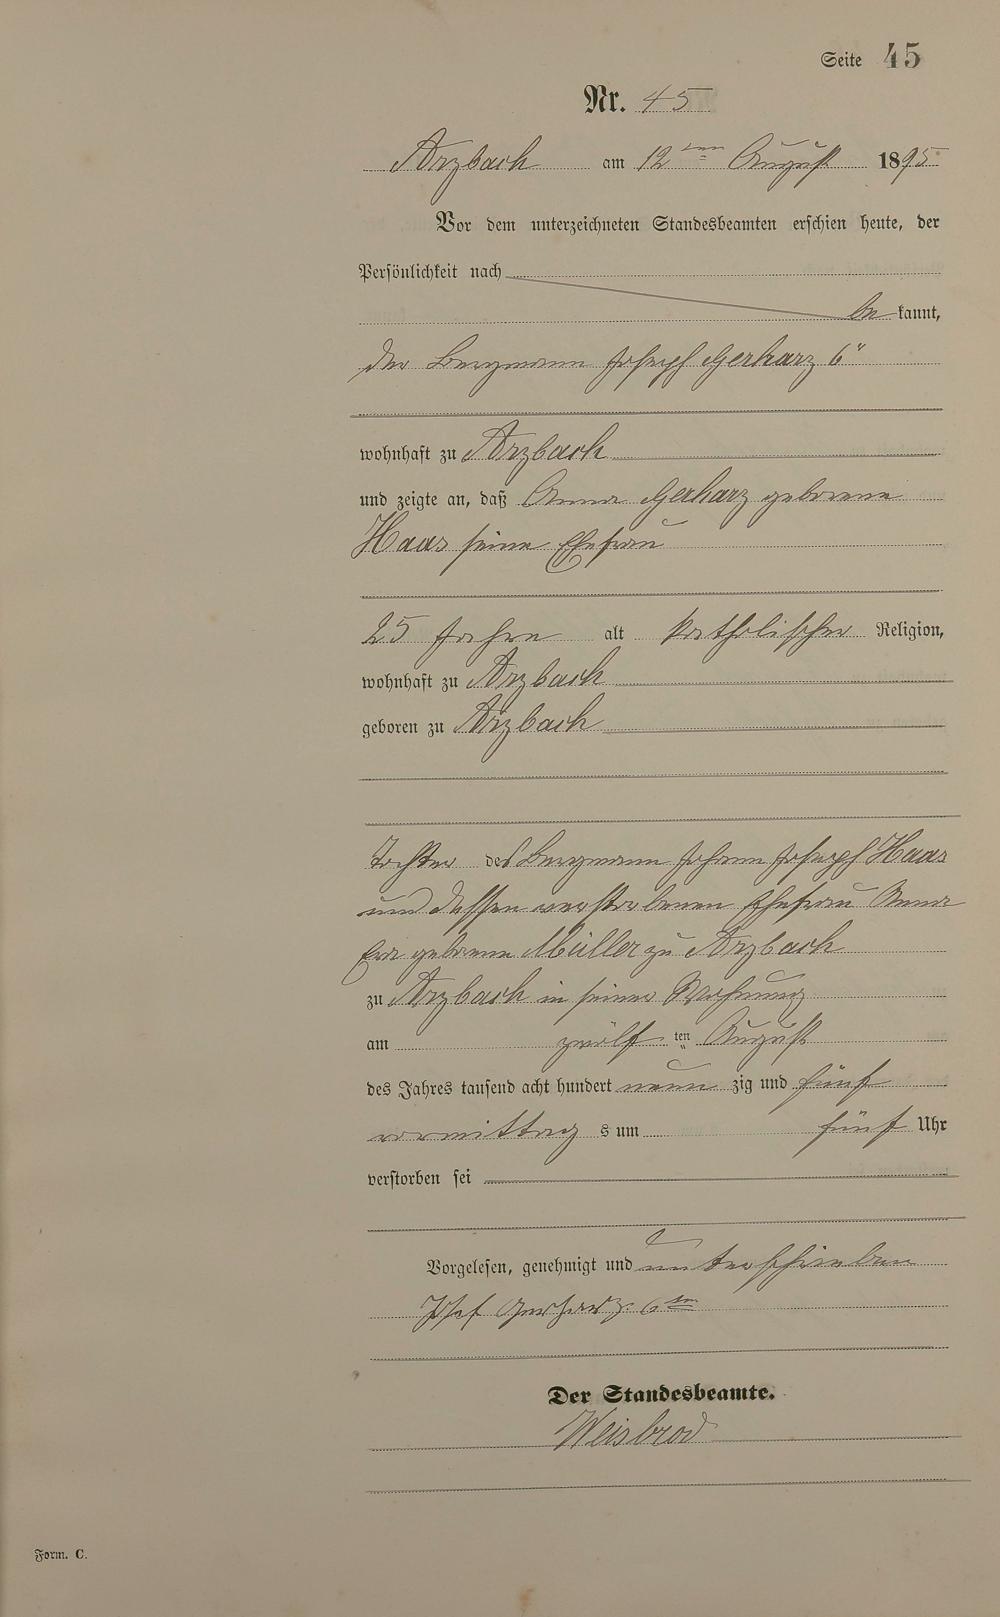 Seite 45
Nr. 45
Arzbach am 12ten August 1895
Vor dem unterzeichneten Standesbeamten erschien heute, der
Persönlichkeit nach
be kannt,
der Bergmann Joseph Gerharz 6"
wohnhaft zu Arzbach
und zeigte an, daß Anna Gerharz geborene
Haas seine Ehefrau
25 Jahre alt katholischer Religion,
wohnhaft zu Arzbach
geboren zu Arzbach
Tochter des Bergmann Johann Joseph Haas
und dessen verstorbenen Ehefrau Anna
Eva geborene Müller zu Arzbach
zu Arzbach in seiner Wohnung
am zwölf ten August
des Jahres tausend acht hundert neun zig und fünf
vormittag s um fünf Uhr
verstorben sei
Vorgelesen, genehmigt und unterschrieben
Josef Gerharz 6ter
Der Standesbeamte.
Weisbrod
Form. C.